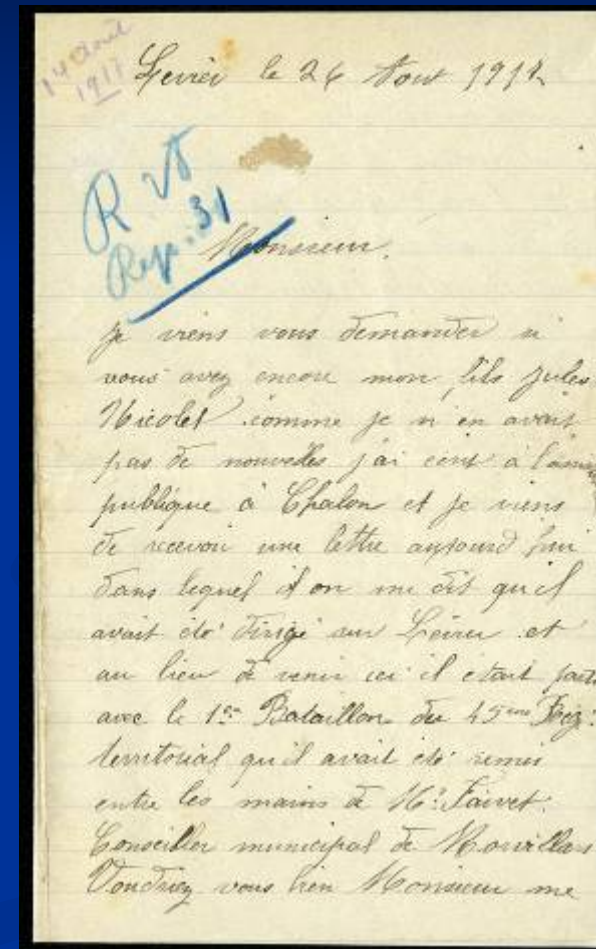 14 Août
1917
le 26 Aout 1917
R
Rep. 31
Monsieur.
Je viens vous demander si
vous avez encore mon fils Jules
Nicolet comme je n en avait
pas de nouvelles j'ai ecrit à
publique à Chalon et je viens
de recevoir une lettre aujourd hui
dans lequel il on me dit qu il
avait été dirigé sur et
au lieu de venir ici il etait parti
avec le 1er Bataillon du 45eme Rég.
territorial qu il avait été remis
entre les mains de Mr Faivet.
Conseiller municipal de Morvillars
Voudriez vous bien Monsieur me